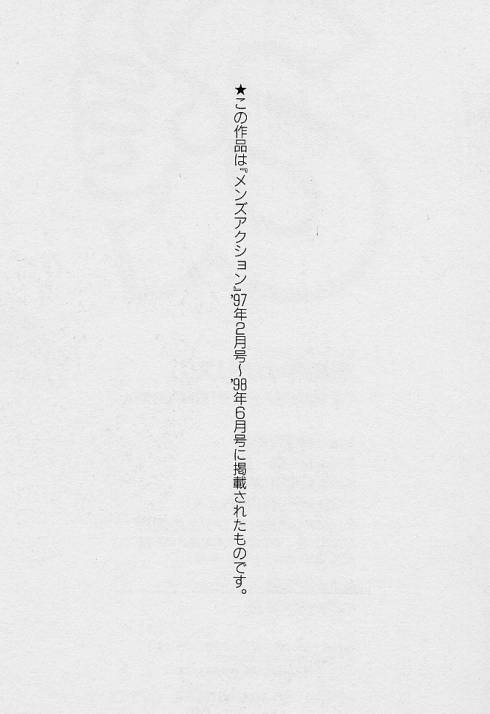 ★この作品は『メンズアクション』'97年2月号～'98年6月号に掲載されたものです。